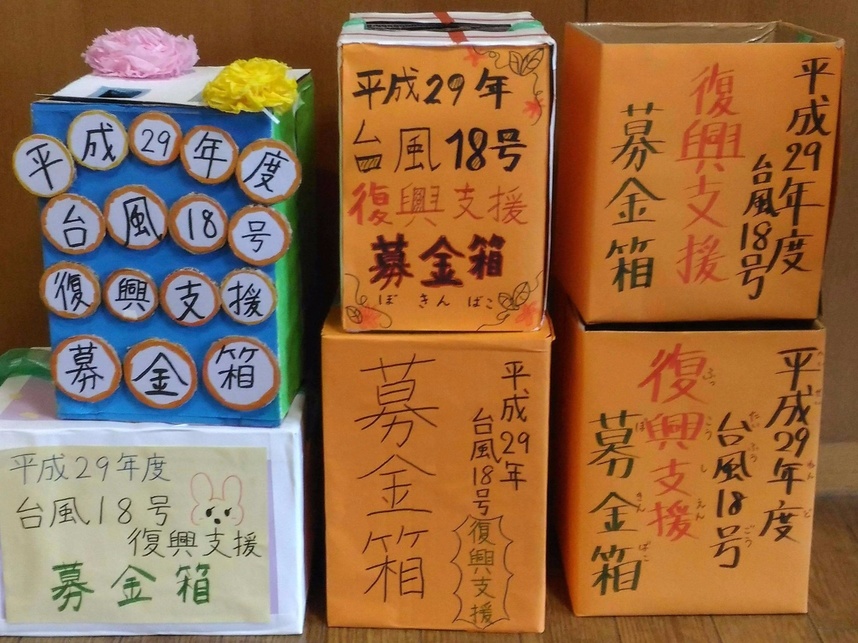 平成29年度
台風18号
復興支援
募金箱
平成29年度
台風18号
復興支援
募金箱
平成29年
台風18号
復興支援
募金箱
ぼきんばこ
平成29年
台風18号
復興支援
募金箱
平成29年度
台風18号
復興支援
募金箱
平成29年度
へいせい ねんど
台風18号
たいふう ごう
復興支援
ふっこうしえん
募金箱
ぼきんばこ